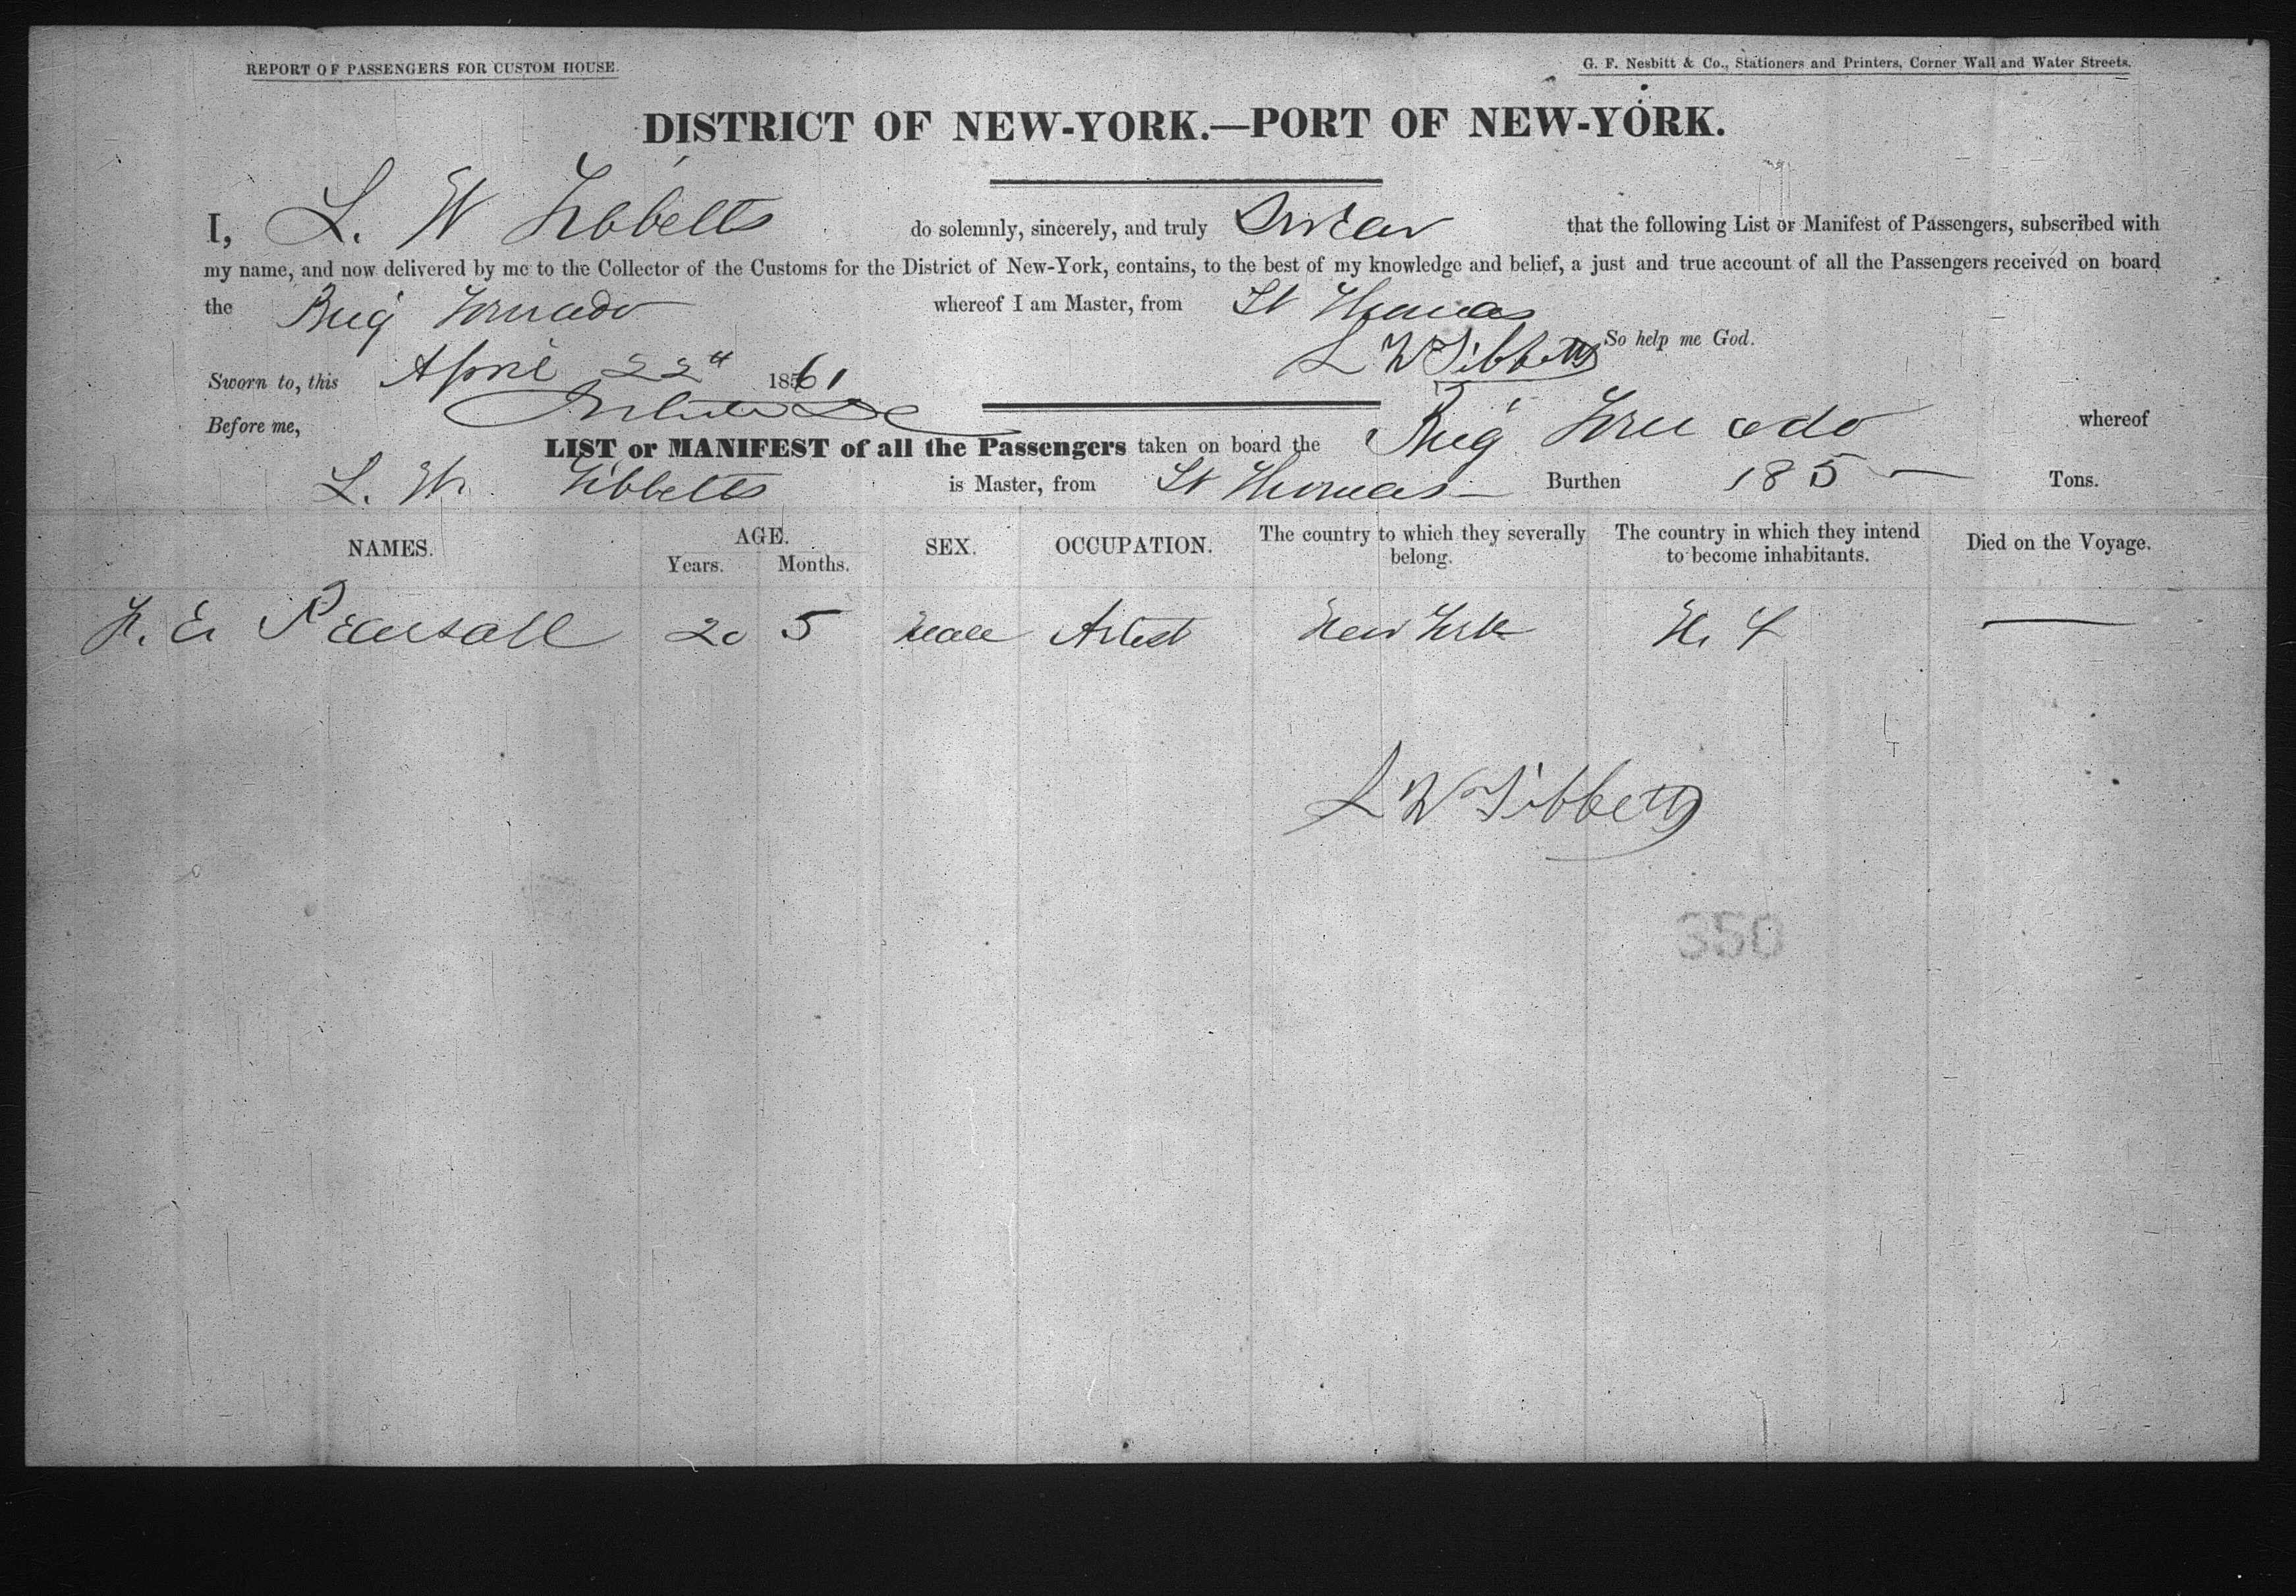 REPORT OF PASSENGERS FOR CUSTOM HOUSE.
G. F. Nesbitt & Co., Stationers and Printers, Corner Wall and Water Streets.
DISTRICT OF NEW-YORK.—PORT OF NEW-YORK.
I, L. W Tibbetts do solemnly, sincerely, and truly Swear that the following List or Manifest of Passengers, subscribed with
my name, and now delivered by me to the Collector of the Customs for the District of New-York, contains, to the best of my knowledge and belief, a just and true account of all the Passengers received on board
the Brig Tornado whereof I am Master, from St Thomas
L W Tibbetts So help me God.
Sworn to, this April 22d 1861
Before me,
LIST or MANIFEST of all the Passengers taken on board the Brig Tornado whereof
L. W. Tibbetts is Master, from St Thomas Burthen 185 — Tons.
NAMES. AGE. SEX. OCCUPATION. The country to which they severally belong. The country in which they intend to become inhabitants. Died on the Voyage.
Years. Months.
E. Pearsall 20 5 Male Artist New York N. Y —
L W Tibbetts
350